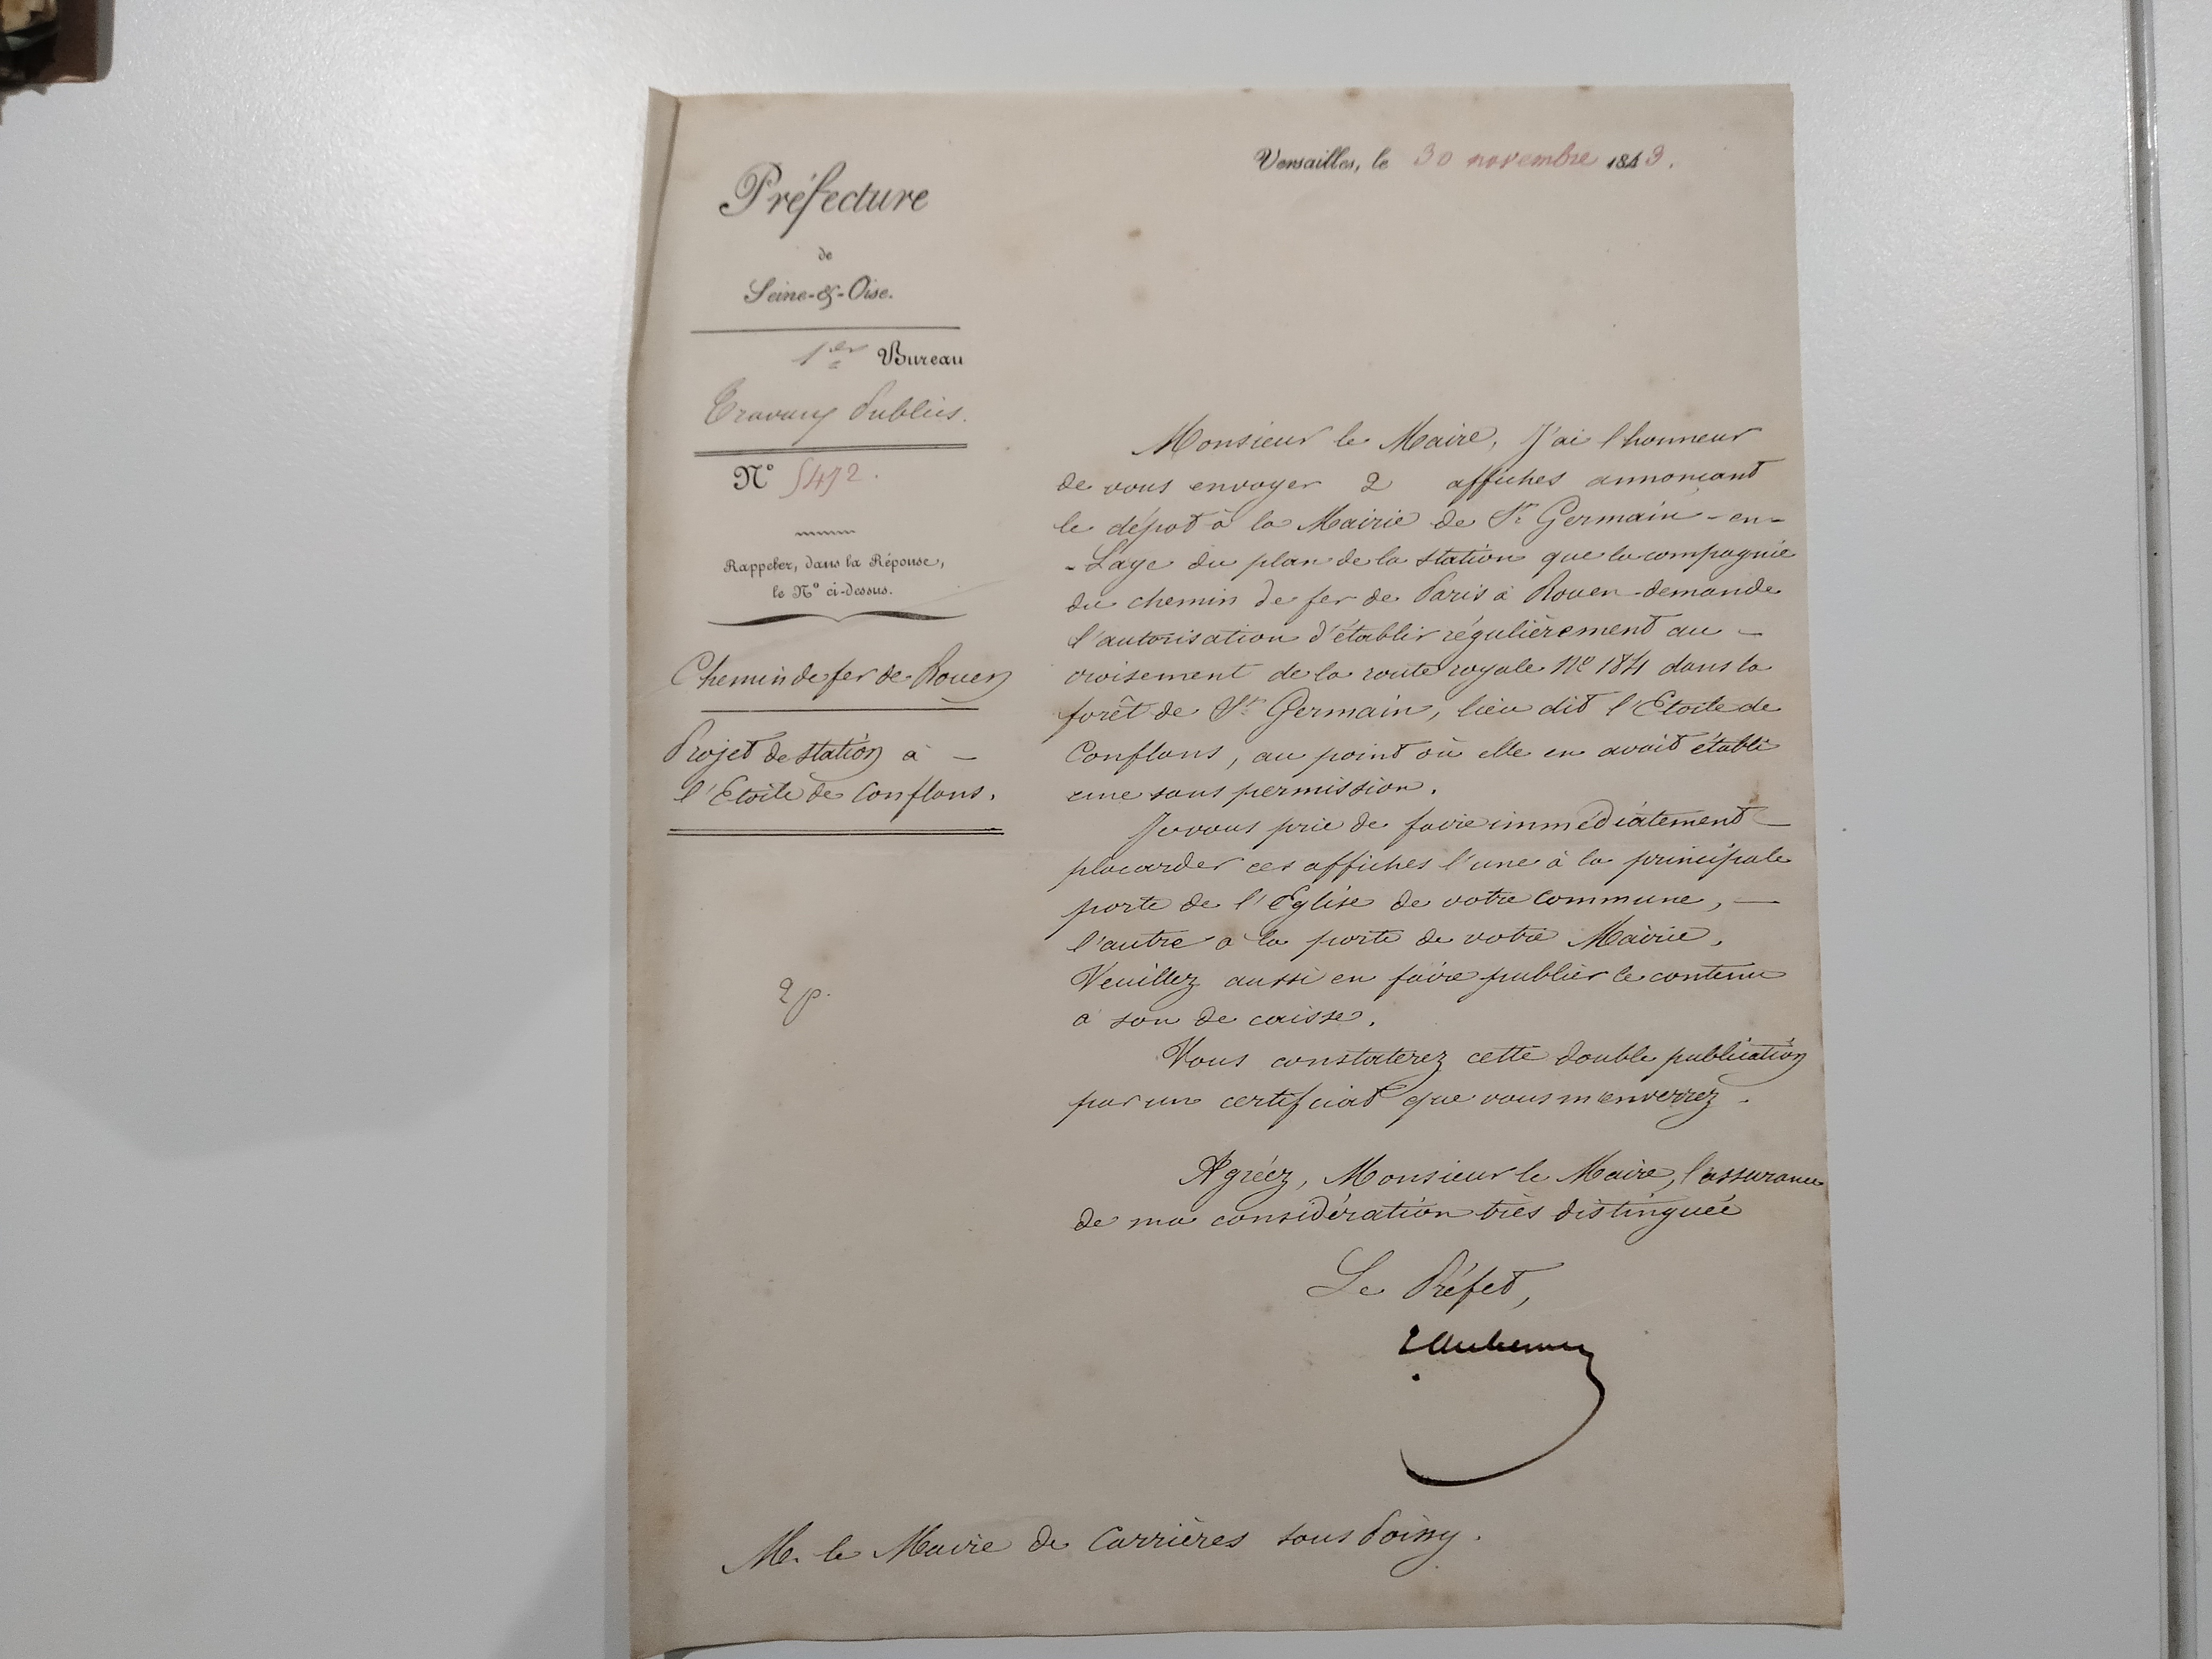 Versailles, le 30 novembre 1843.
Préfecture
de
Seine-&-Oise.
1er Bureau
Travaux Publics.
N° 5472.
Rappeler, dans la Réponse,
le N° ci-dessus.
Chemin de fer de Rouen
Projet de station à —
l'Etoile de Conflans.
2 p.
Monsieur le Maire, J'ai l'honneur
de vous envoyer 2 affiches annonçant
le dépot à la Mairie de St Germain-en-
-Laye du plan de la station que la compagnie
du chemin de fer de Paris à Rouen demande
l'autorisation d'établir régulièrement au —
croisement de la route royale N° 184 dans la
forêt de St Germain, lieu dit l'Etoile de
Conflans, au point où elle en avait établi
une sans permission.
Je vous prie de faire immédiatement —
placarder ces affiches l'une à la principale
porte de l'Eglise de votre commune, —
l'autre à la porte de votre Mairie.
Veuillez aussi en faire publier le contenu
à son de caisse.
Vous constaterez cette double publication
par un certificat que vous m'enverrez.
Agréez, Monsieur le Maire, l'assurance
de ma considération très distinguée
Le Préfet,
M. le Maire de Carrières sous Poissy.